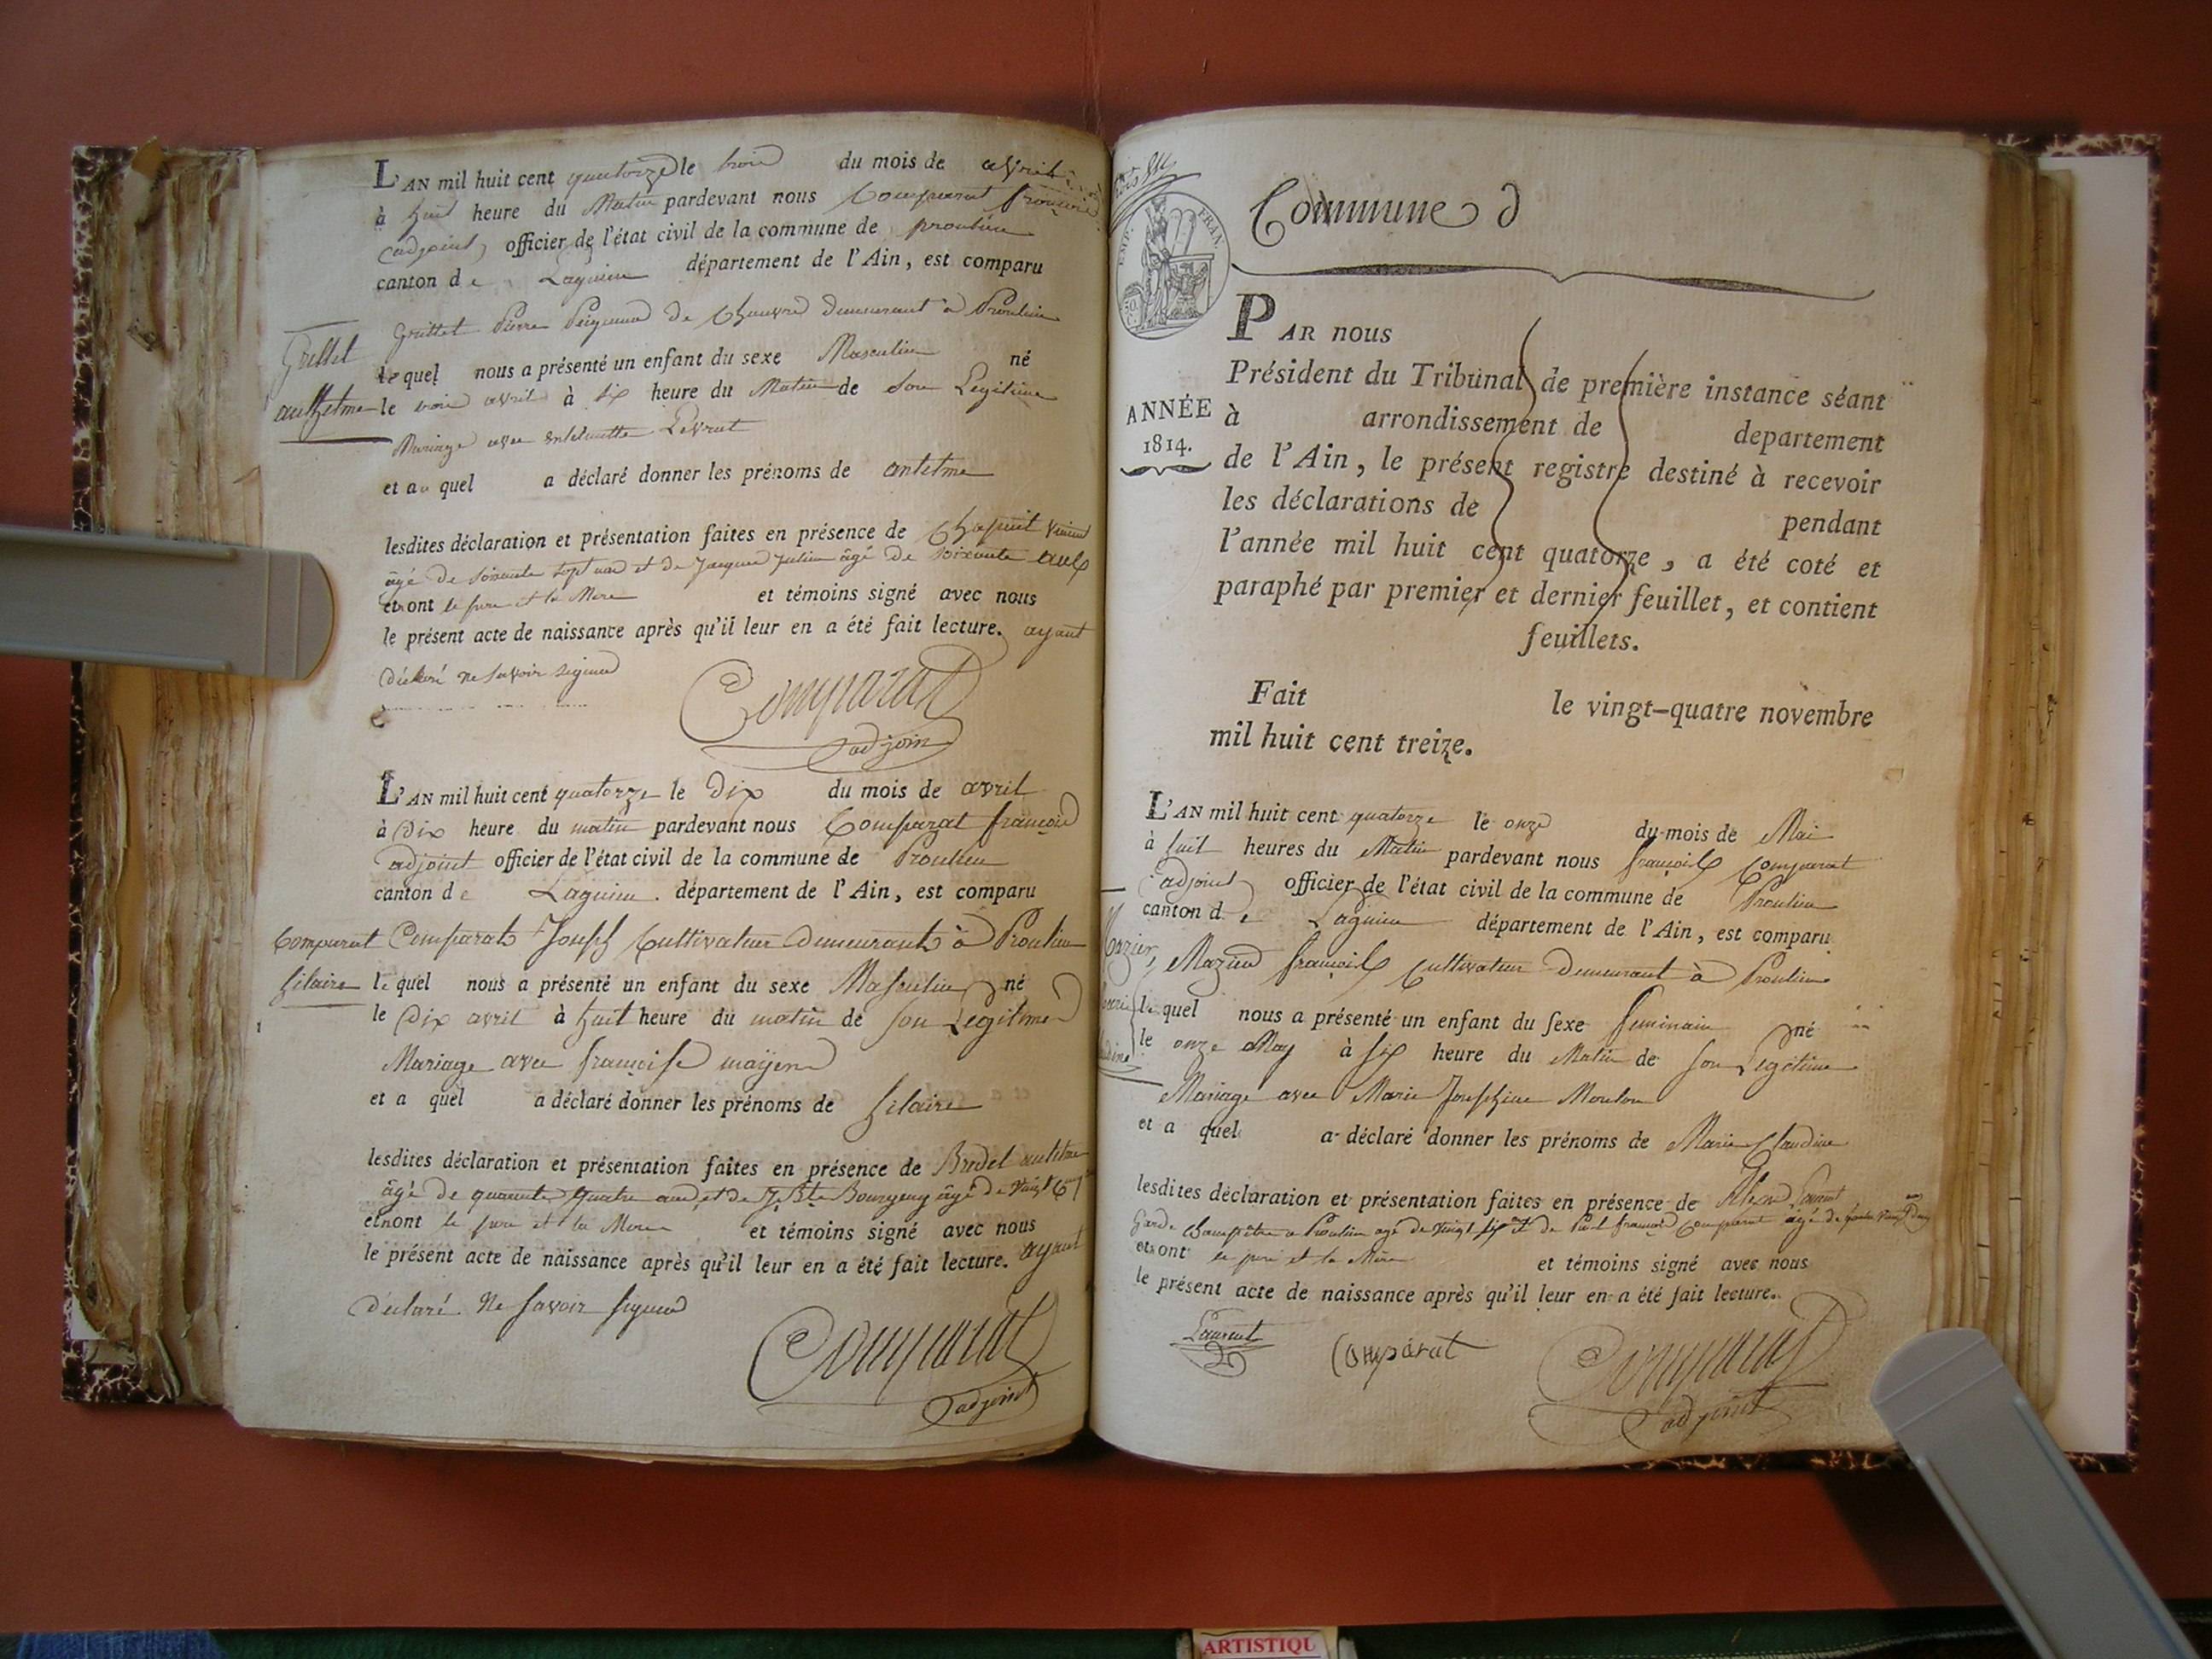 L'AN mil huit cent quatorze le trois du mois de avril
à huit heure du Matin pardevant nous Comparat françois
adjoint officier de l'état civil de la commune de proulieu
canton de Lagnieu département de l'Ain, est comparu
Grillet Pierre Peigneur de Chanvre demeurant à Proulieu
Grillet
lequel nous a présenté un enfant du sexe Masculin né
anthelme le trois avril à six heure du Matin de son Legitime
Mariage avec Levrat
et au quel a déclaré donner les prénoms de antelme
lesdites déclaration et présentation faites en présence de Chapuit
âgé de soixante sept ans et de Jacques Julien âgé de soixante ans
et ont le pere et la Mere et témoins signé avec nous
le présent acte de naissance après qu'il leur en a été fait lecture. ayant
déclaré ne savoir signer
Comparat
adjoint
L'AN mil huit cent quatorze le dix du mois de avril
à Dix heure du matin pardevant nous Comparat françois
adjoint officier de l'état civil de la commune de Proulieu
canton de Lagnieu département de l'Ain, est comparu
Comparat Comparat Joseph Cultivateur demeurant à Proulieu
hilaire lequel nous a présenté un enfant du sexe Masculin né
le Dix avril à huit heure du matin de son Legitime
Mariage avec françoise
et a quel a déclaré donner les prénoms de hilaire
lesdites déclaration et présentation faites en présence de Bredel antelme
âgé de quarante quatre ans et de âgé de
et ont le pere et la Mere et témoins signé avec nous
le présent acte de naissance après qu'il leur en a été fait lecture. ayant
déclaré Ne savoir signer
Comparat
adjoint
Commune d
EMP. FRAN.
PAR nous
Président du Tribunal de première instance séant
ANNÉE
1814.
à arrondissement de departement
de l'Ain, le présent registre destiné à recevoir
les déclarations de pendant
l'année mil huit cent quatorze, a été coté et
paraphé par premier et dernier feuillet, et contient
feuillets.
Fait le vingt-quatre novembre
mil huit cent treize.
L'AN mil huit cent quatorze le onze du mois de Mai
à huit heures du Matin pardevant nous françois Comparat
adjoint officier de l'état civil de la commune de Proulieu
canton de Lagnieu département de l'Ain, est comparu
françois Cultivateur demeurant à Proulieu
lequel nous a présenté un enfant du sexe feminain né
le onze May à six heure du Matin de son Legitime
Mariage avec Marie Josephine Moulon
et a quel a déclaré donner les prénoms de Marie Claudine
lesdites déclaration et présentation faites en présence de Laurent
Garde Champêtre a Proulieu agé de vingt six et de françois Comparat âgé de
et ont le pere et la Mere et témoins signé avec nous
le présent acte de naissance après qu'il leur en a été fait lecture.
Laurent
Comparat
Comparat
adjoint
ARTISTIQU